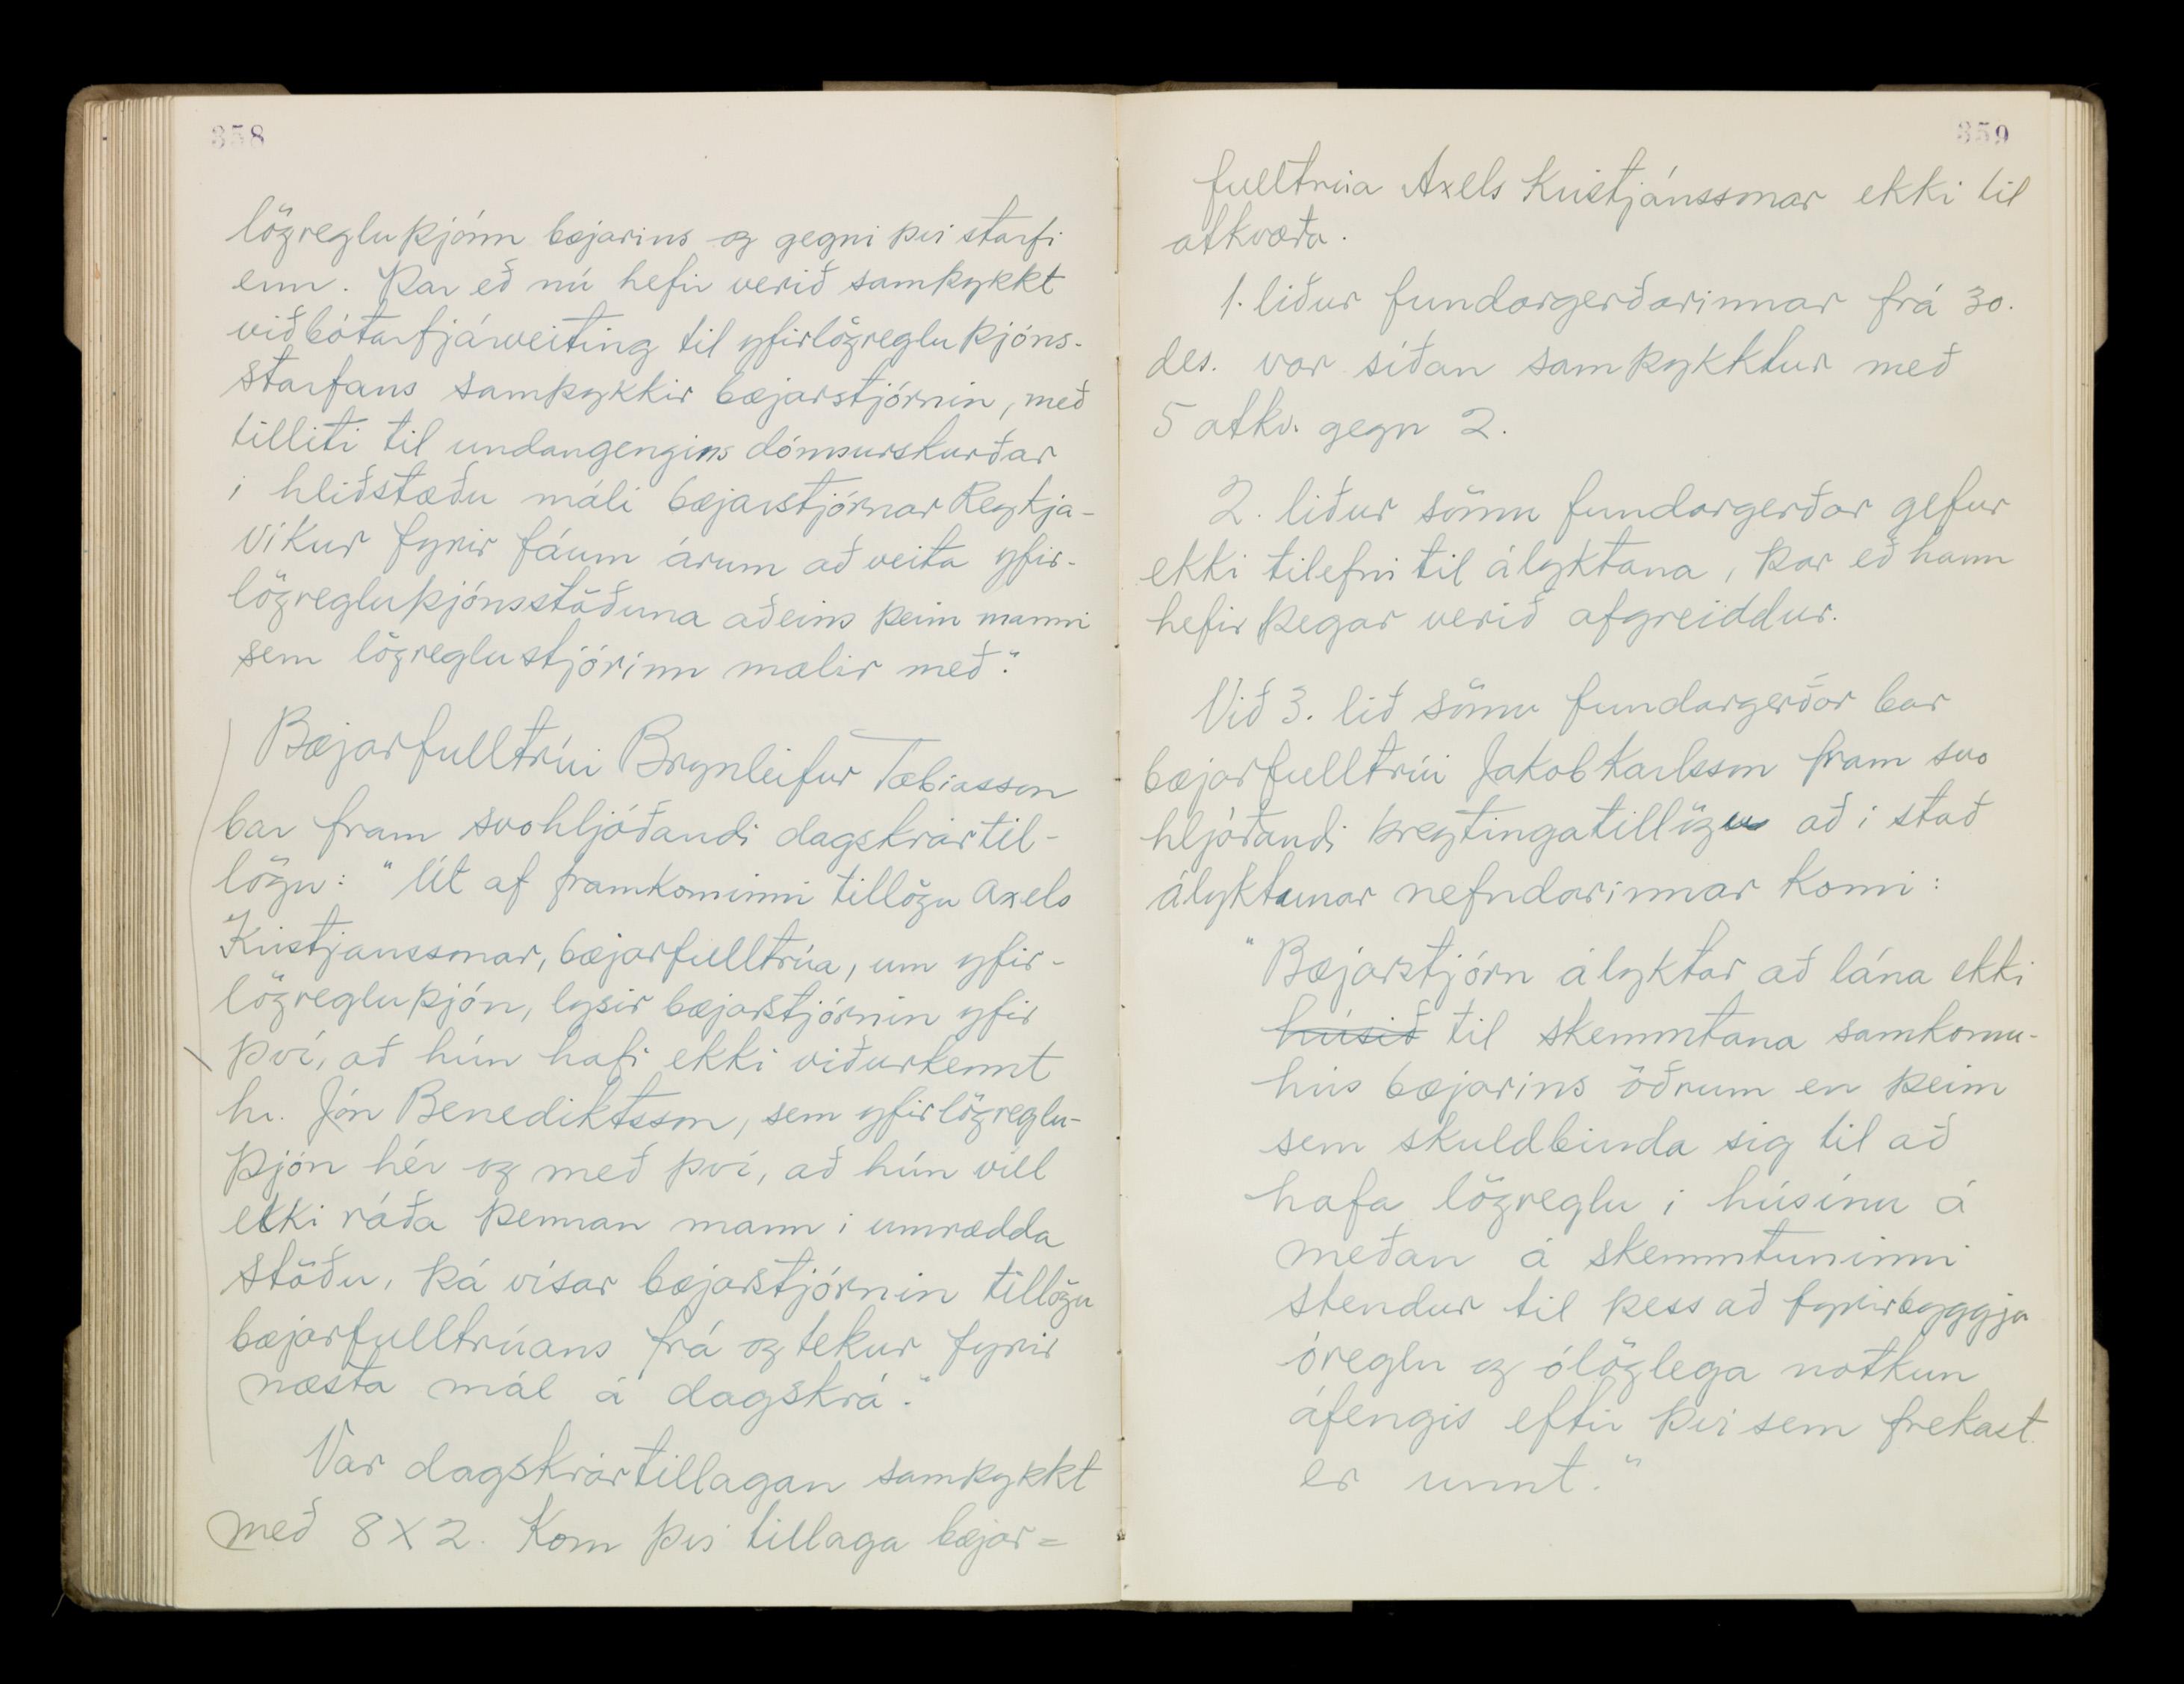 358
lögregluþjónn bæjarins og gegni því starfi
enn. Þar eð nú hefir verið samþykkt
viðbótarfjárveiting til yfirlögregluþjóns-
starfans samþykkir bæjarstjórnin, með
tilliti til undangengins dómsurskurðar
í hliðstæðu máli bæjarstjórnar Reykja-
víkur fyrir fáum árum að veita yfir-
lögregluþjónsstöðuna aðeins þeim manni
sem lögreglustjórinn mælir með."
Bæjarfulltrúi Brynleifur Tobiasson
bar fram svohljóðandi dagskrártil-
lögu: "Út af framkominni tillögu Axels
Kristjanssonar, bæjarfulltrúa, um yfir-
lögregluþjón, lysir bæjarstjórnin yfir
því, að hún hafi ekki viðurkennt
hr. Jón Benediktsson, sem yfirlögreglu-
þjón hér og með því, að hún vill
ekki ráða þennan mann i umrædda
stöðu, þá vísar bæjarstjórnin tillögu
bæjarfulltrúans frá og tekur fyrir
næsta mál á dagskrá."
Var dagskrártillagan samþykkt
með 8 X 2. Kom þvi tillaga bæjar=
359
fulltrúa Axels Kristjánssonar ekki til
atkvæða.
1. liður fundargerðarinnar frá 30.
des. var síðan samþykktur með
5 atkv. gegn 2.
2. liður sömu fundargerðar gefur
ekki tilefni til ályktana, þar eð hann
hefir þegar verið afgreiddur.
Við 3. lið sömu fundargerðar bar
bæjarfulltrúi Jakob Karlsson fram svo
hljóðandi breytingatillögu að i stað
ályktunar nefndarinnar komi:
"Bæjarstjórn ályktar að lána ekki
húsið til skemmtana samkomu-
hús bæjarins öðrum en þeim
sem skuldbinda sig til að
hafa lögreglu i húsinu á
meðan á skemmtuninni
stendur til þess að fyrirbyggja
óreglu og ólöglega notkun
áfengis eftir því sem frekast
er unnt."